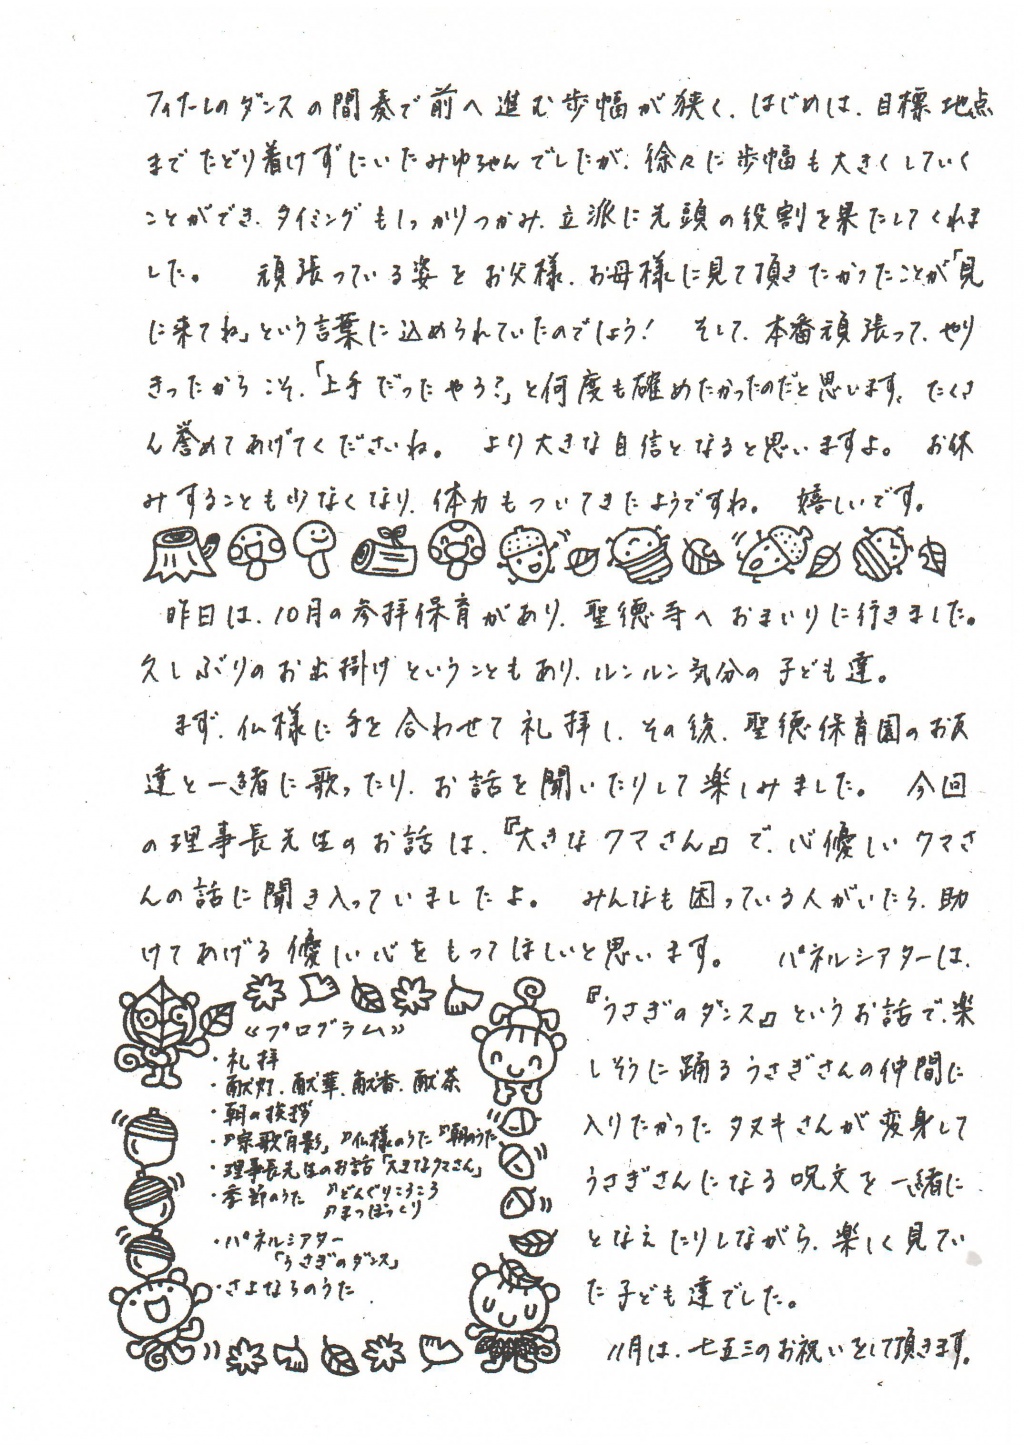 フィナーレのダンスの間奏で前へ進む歩幅が狭く、はじめは、目標地点
までたどり着けずにいたみゆちゃんでしたが、徐々に歩幅も大きくしていく
ことができ、タイミングもしっかりつかみ、立派に先頭の役割を果たしてくれま
した。 頑張っている姿をお父様、お母様に見て頂きたかったことが「見
に来てね」という言葉に込められていたのでしょう! そして、本番頑張って、やり
きったからこそ、「上手だったやろ?」と何度も確めたかったのだと思います、たくさ
ん誉めてあげてくださいね。 より大きな自信となると思いますよ。 お休
みすることも少なくなり、体力もついてきたようですね。 嬉しいです。
昨日は、10月の参拝保育があり、聖徳寺へおまいりに行きました。
久しぶりのお出掛けということもあり、ルンルン気分の子ども達。
まず、仏様に手を合わせて礼拝し、その後、聖徳保育園のお友
達と一緒に歌ったり、お話を聞いたりして楽しみました。 今回
の理事長先生のお話は、『大きなクマさん』で、心優しいクマさ
んの話に聞き入っていましたよ。 みんなも困っている人がいたら、助
けてあげる優しい心をもってほしいと思います。 パネルシアターは、
『うさぎのダンス』というお話で、楽
しそうに踊るうさぎさんの仲間に
入りたかったタヌキさんが変身して
うさぎさんになる呪文を一緒に
となえたりしながら、楽しく見てい
た子ども達でした。
11月は、七五三のお祝いをして頂きます。
≪プログラム≫
・礼拝
・献灯、献華、献香、献茶
・朝の挨拶
・♪宗歌「月影」 ♪仏様のうた ♪朝のうた
・理事長先生のお話「大きなクマさん」
・季節のうた ♪どんぐりころころ
♪まつぼっくり
・パネルシアター
「うさぎのダンス」
・さよならのうた